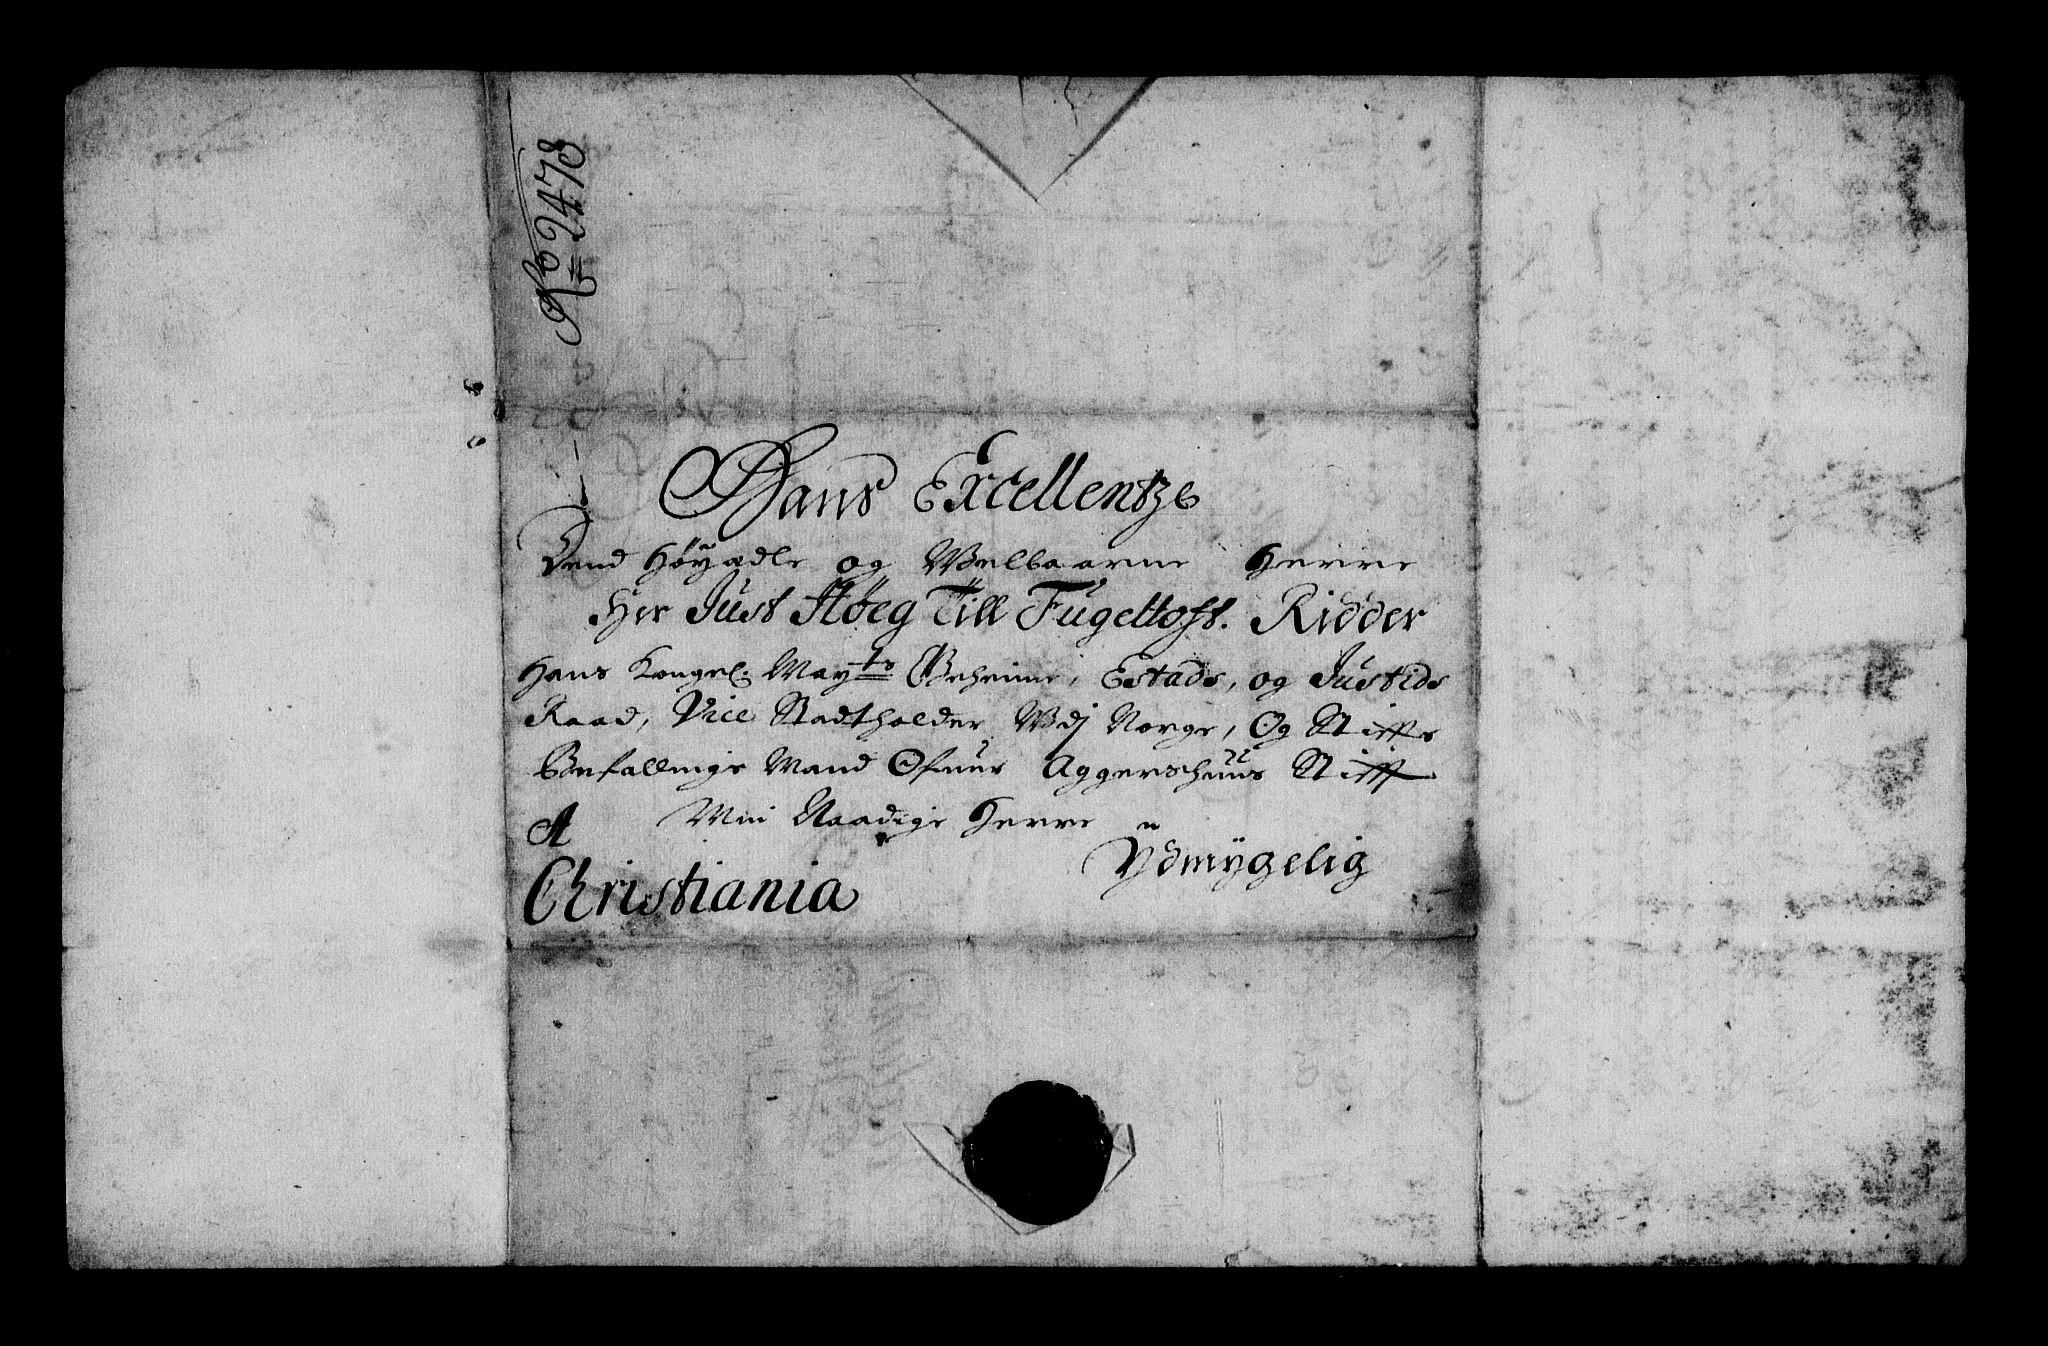 No 2478
Hans Excellentze
Dend Høÿædle og Welbaarne Herre
Her Just Høeg Till Fugeltoft. Ridder
Hans Kongel: Mayts Geheime, Estads, og Justids
Raad, Vice Stadtholder Udj Norge, Og Stiffts
Befallings Mand Ofuer Aggershuus Stifft
Min Naadige Herre
A
Ydmygelig
Christiania